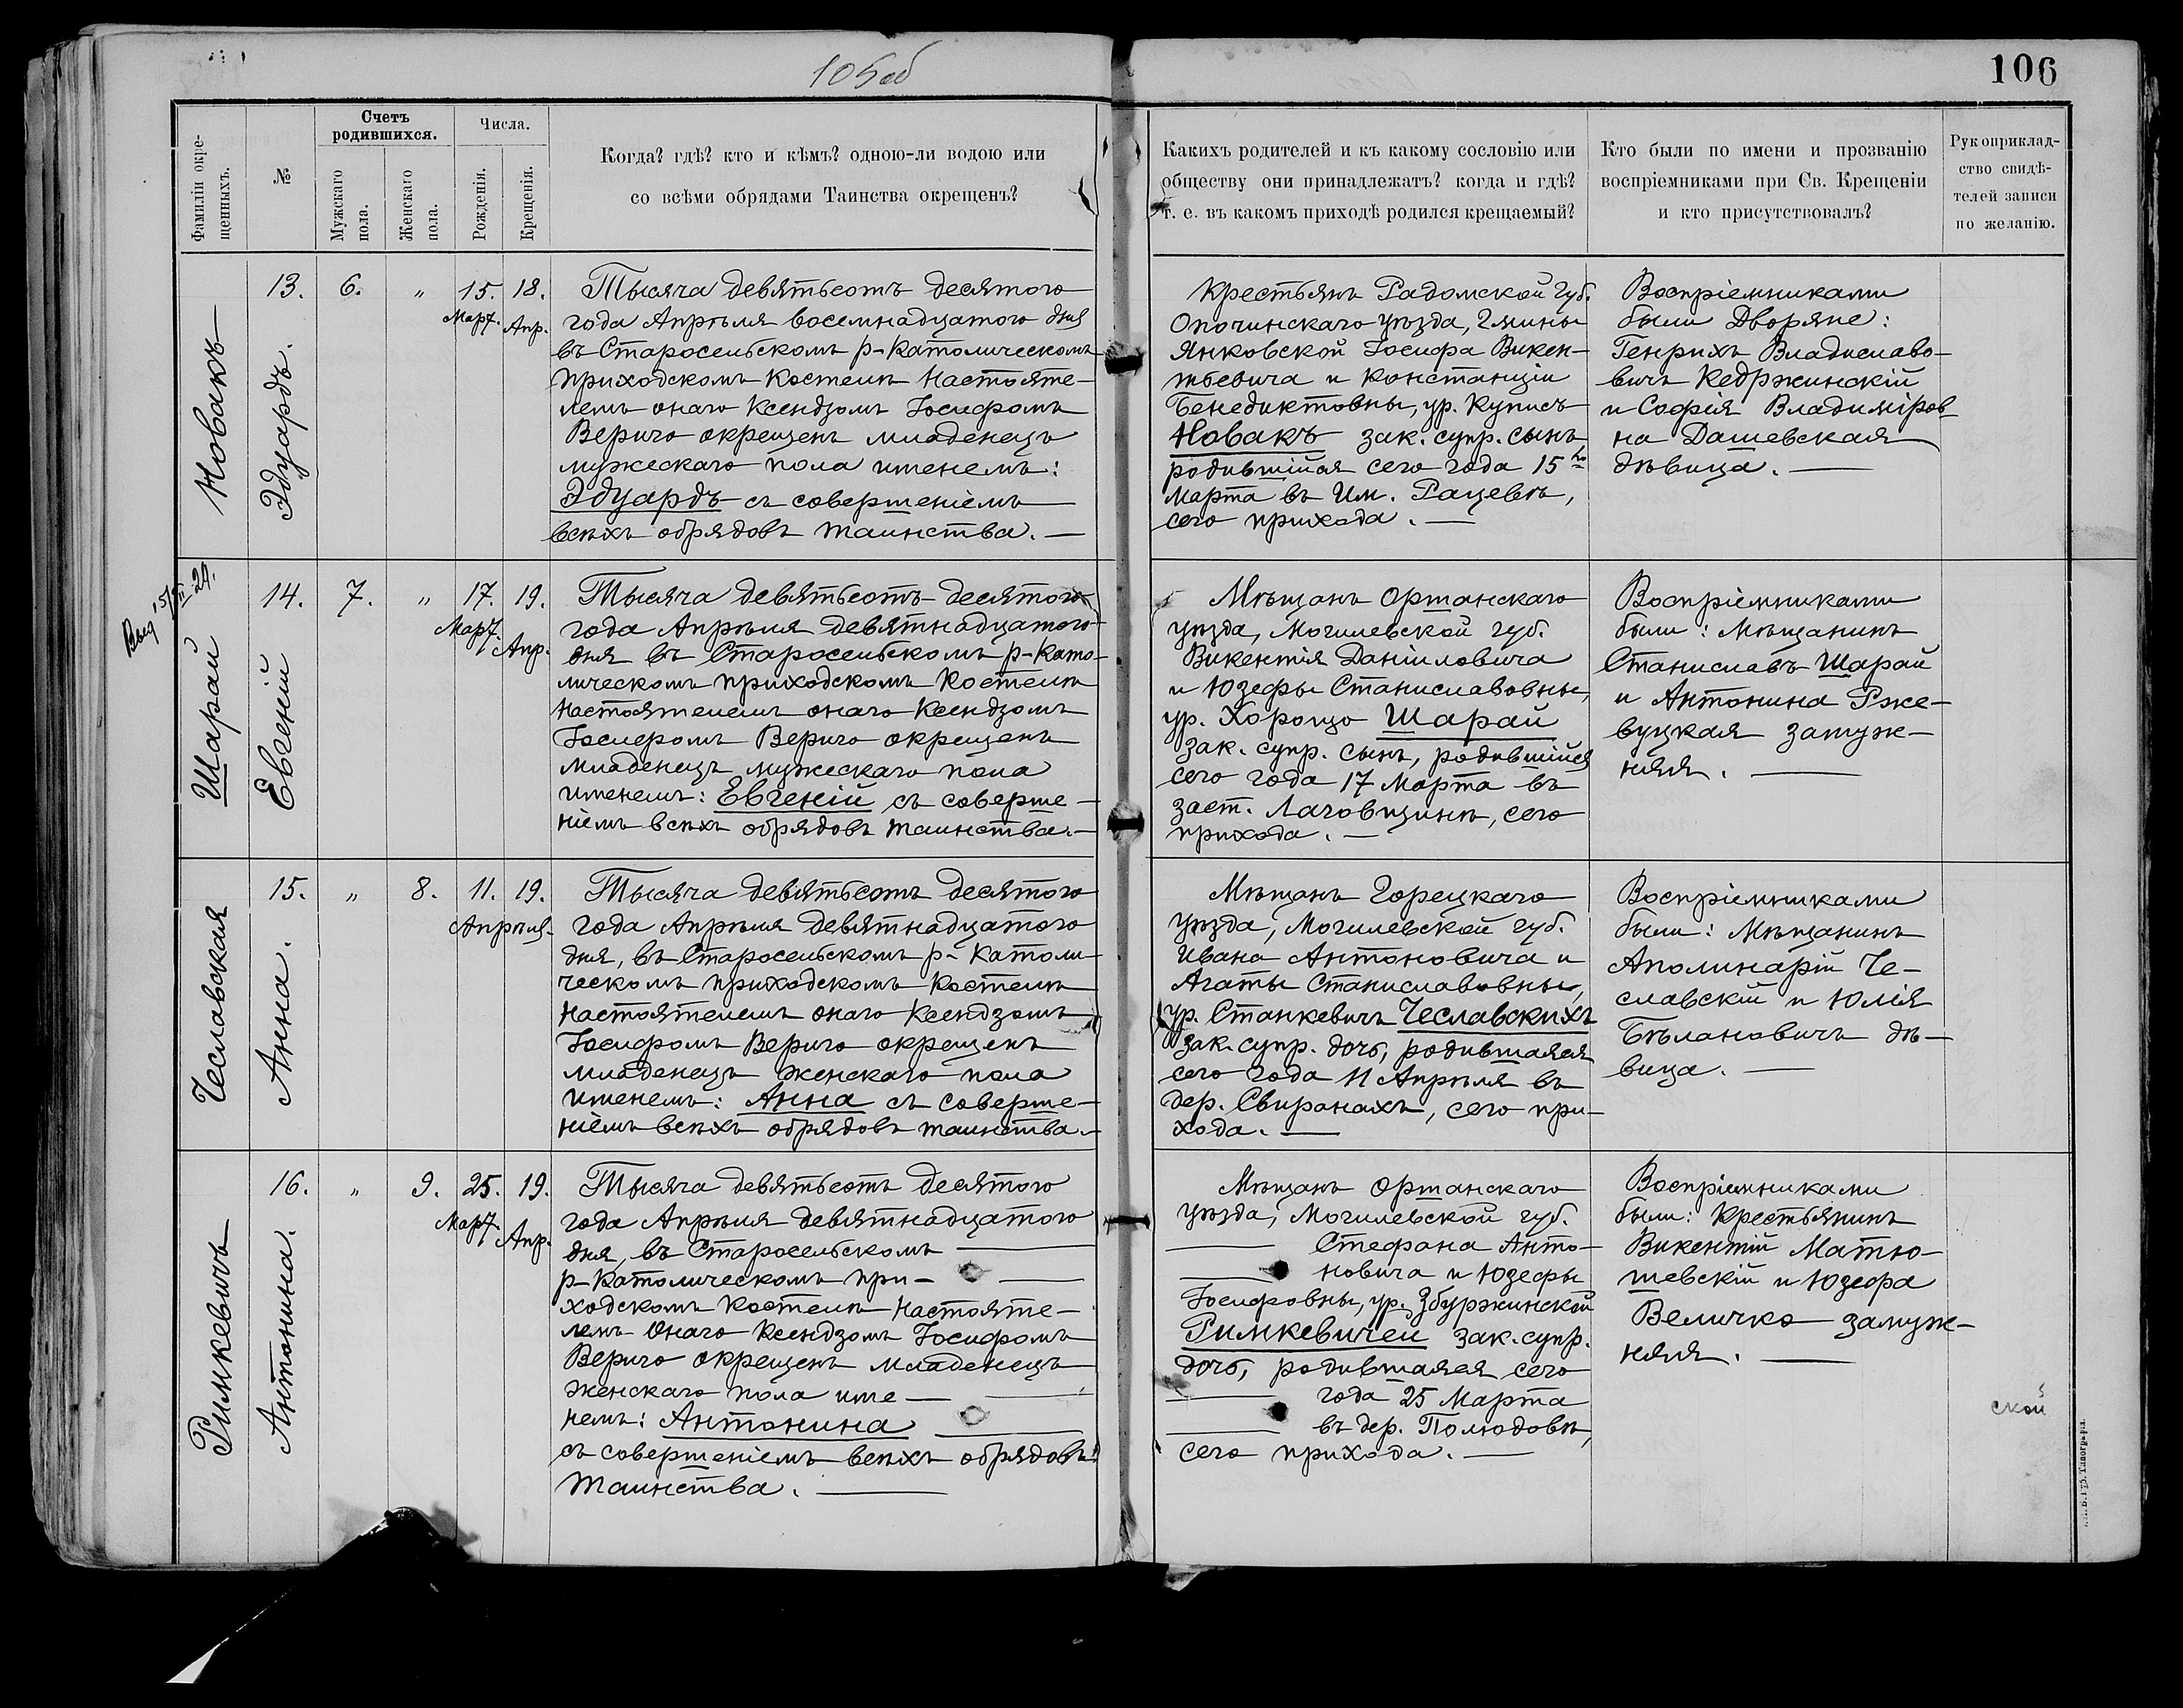 105об
106
Фамиліи окре-
щенныхъ.
№
Счетъ
родившихся.
Мужскаго
пола.
Женскаго
пола.
Числа.
Рожденія.
Крещенія.
Когда? гдѣ? кто и кѣмъ? одною-ли водою или
со всѣми обрядами Таинства окрещенъ?
Какихъ родителей и къ какому сословію или
обществу они принадлежатъ? когда и гдѣ?
т. е. въ какомъ приходѣ родился крещаемый?
Кто были по имени и прозванію
воспріемниками при Св. Крещеніи
и кто присутствовалъ?
Рукоприклад-
ство свидѣ-
телей записи
по желанію.
Новакъ
13.
Эдуардъ.
6.
"
15.
Март.
18.
Апр.
Тысяча девятьсотъ десятого
года Апрѣля восемнадцатого дня
въ Старосельскомъ р-католическомъ
приходскомъ костелѣ Настояте-
лемъ онаго Ксендзомъ Іосифомъ
Вериго окрещенъ младенецъ
мужескаго пола именемъ:
Эдуардъ съ совершеніемъ
всѣхъ обрядовъ таинства. —
Крестьянъ Радомской губ.
Опочинскаго уѣзда, гмины
Янковской Іосифа Викен-
тьевича и Констанціи
Бенедиктовны, ур. Куписъ
Новакъ зак. супр. сынъ,
родившійся сего года 15го
марта въ Им. Рацевѣ,
сего прихода. —
Воспріемниками
были Дворяне:
Генрихъ Владиславо-
вичъ Кедржинскій
и Софія Владиміров
на Дашевская
дѣвица. —
Выд 15/VII 29.
Шарай
14.
Евгеній
7.
"
17.
Март.
19.
Апр.
Тысяча девятьсотъ десятого
года Апрѣля девятнадцатого
дня въ Старосельскомъ р-като-
лическомъ приходскомъ Костелѣ
Настоятелемъ онаго Ксендзомъ
Іосифомъ Вериго окрещенъ
младенецъ мужескаго пола
именемъ: Евгеній съ соверше-
ніемъ всѣхъ обрядовъ таинства. —
Мѣщанъ Оршанскаго
уѣзда, Могилевской губ.
Викентія Даніиловича
и Юзефы Станиславовны,
ур. Хорощо Шарай
зак. супр. сынъ, родившійся
сего года 17 Марта въ
заст. Лаговщинѣ, сего
прихода. —
Воспріемниками
были: Мѣщанинъ
Станиславъ Шарай
и Антонина Рже-
вуцкая замуж-
няя. —
Чеславская
15.
Анна.
"
8.
11.
19.
Апрѣля.
Тысяча девятьсотъ десятого
года Апрѣля девятнадцатого
дня, въ Старосельскомъ р-католи-
ческомъ приходскомъ Костелѣ
Настоятелемъ онаго Ксендзомъ
Іосифомъ Вериго окрещенъ
младенецъ женскаго пола
именемъ: Анна съ соверше-
ніемъ всѣхъ обрядовъ таинства. —
Мѣщанъ Горецкаго
уѣзда, Могилевской губ.
Ивана Антоновича и
Агаты Станиславовны,
ур. Станкевичъ Чеславскихъ
зак. супр. дочь, родившаяся
сего года 11 Апрѣля въ
дер. Свиранахъ, сего при-
хода. —
Воспріемниками
были: Мѣщанинъ
Аполинарій Че-
славскій и Юлія
Бѣлановичъ дѣ-
вица. —
Римкевичъ
16.
Антонина.
"
9.
25.
Март.
19.
Апр.
Тысяча девятьсотъ десятого
года Апрѣля девятнадцатого
дня, въ Старосельскомъ —
р-католическомъ при- —
ходскомъ Костелѣ Настояте-
лемъ Онаго Ксендзомъ Іосифомъ
Вериго окрещенъ младенецъ
женскаго пола име- —
немъ: Антонина —
съ совершеніемъ всѣхъ обрядовъ
Таинства. —
Мѣщанъ Оршанскаго
уѣзда, Могилевской губ.
— Стефана Анто-
— новича и Юзефы
Іосифовны, ур. Збуржинской
Римкевичей зак. супр.
дочь, родившаяся сего
— года 25 Марта
— въ дер. Полюдовѣ,
сего прихода. —
Воспріемниками
были: Крестьянинъ
Викентій Матю-
шевскій и Юзефа
Величко замуж-
няя. —
ской